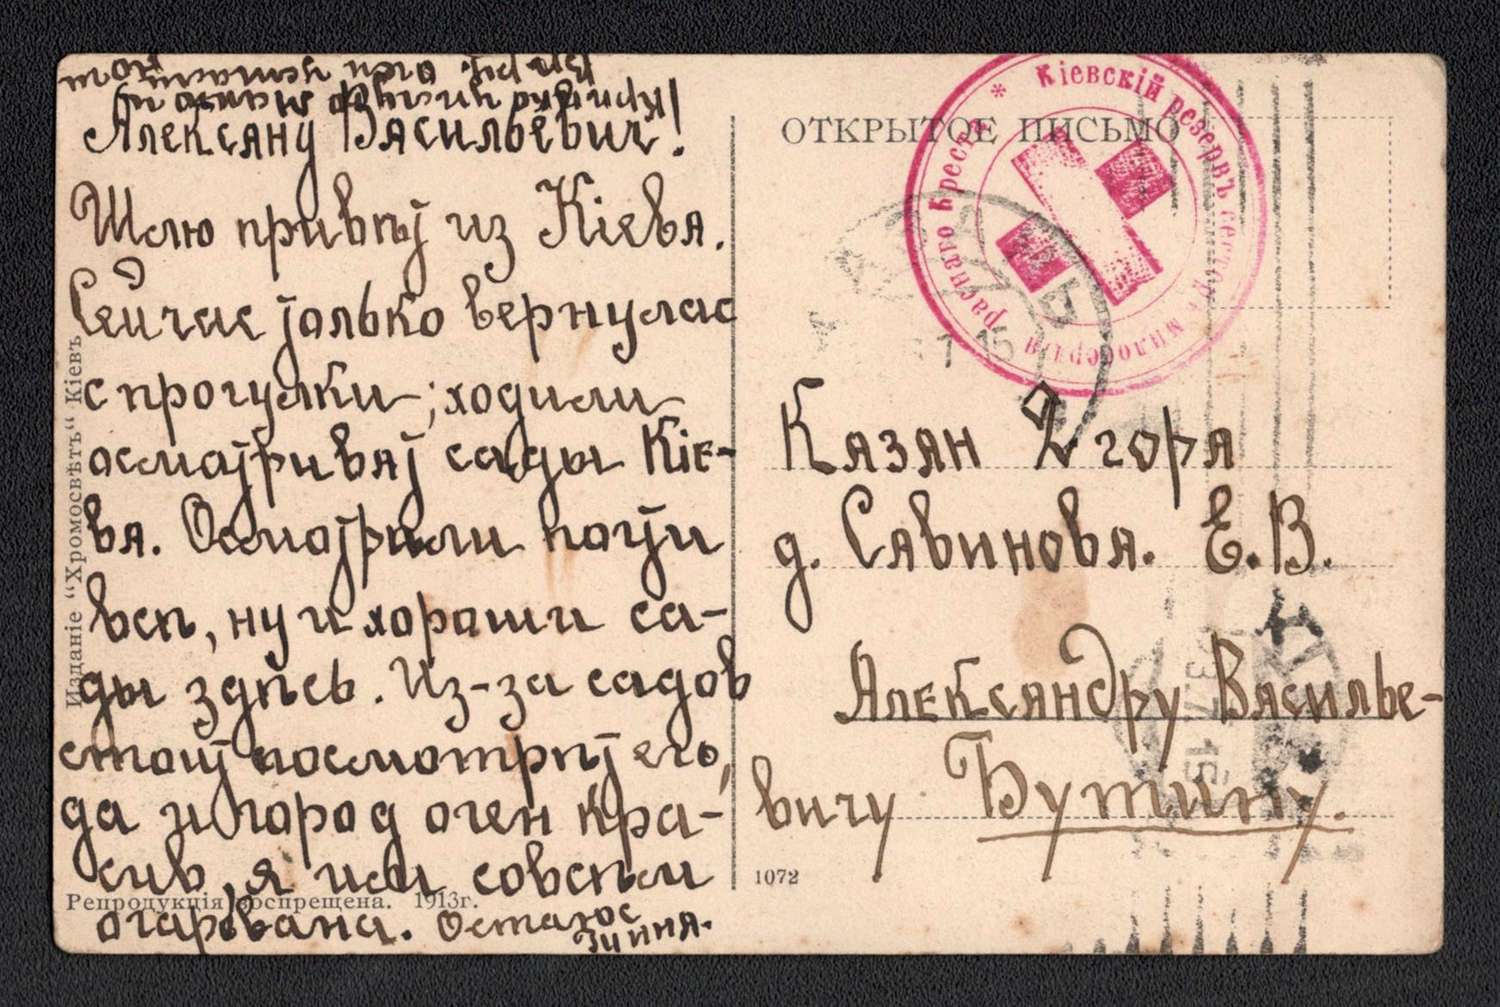 Алексану Васильевич!
Шлю привѣт из Кіева.
Сейчас только вернулас
с прогулки; ходили
осматриват сады Кіе-
ва. Осматрили почти
всѣ, ну и хороши са-
ды здѣсь. Из-за садов
стоит посмотрѣт его,
да и город очен кра-
сив, я им совсѣм
очарована.
Издание "Хромосвѣтъ" Кіевъ
Репродукція воспрещена. 1913г.
ОТКРЫТОЕ ПИСЬМО
Кіевскій резервъ сестеръ милосердія Краснаго Креста *
15
Казан 2 гора
д. Савинова. Е.В.
Александру Василье-
вичу Бутину.
1072